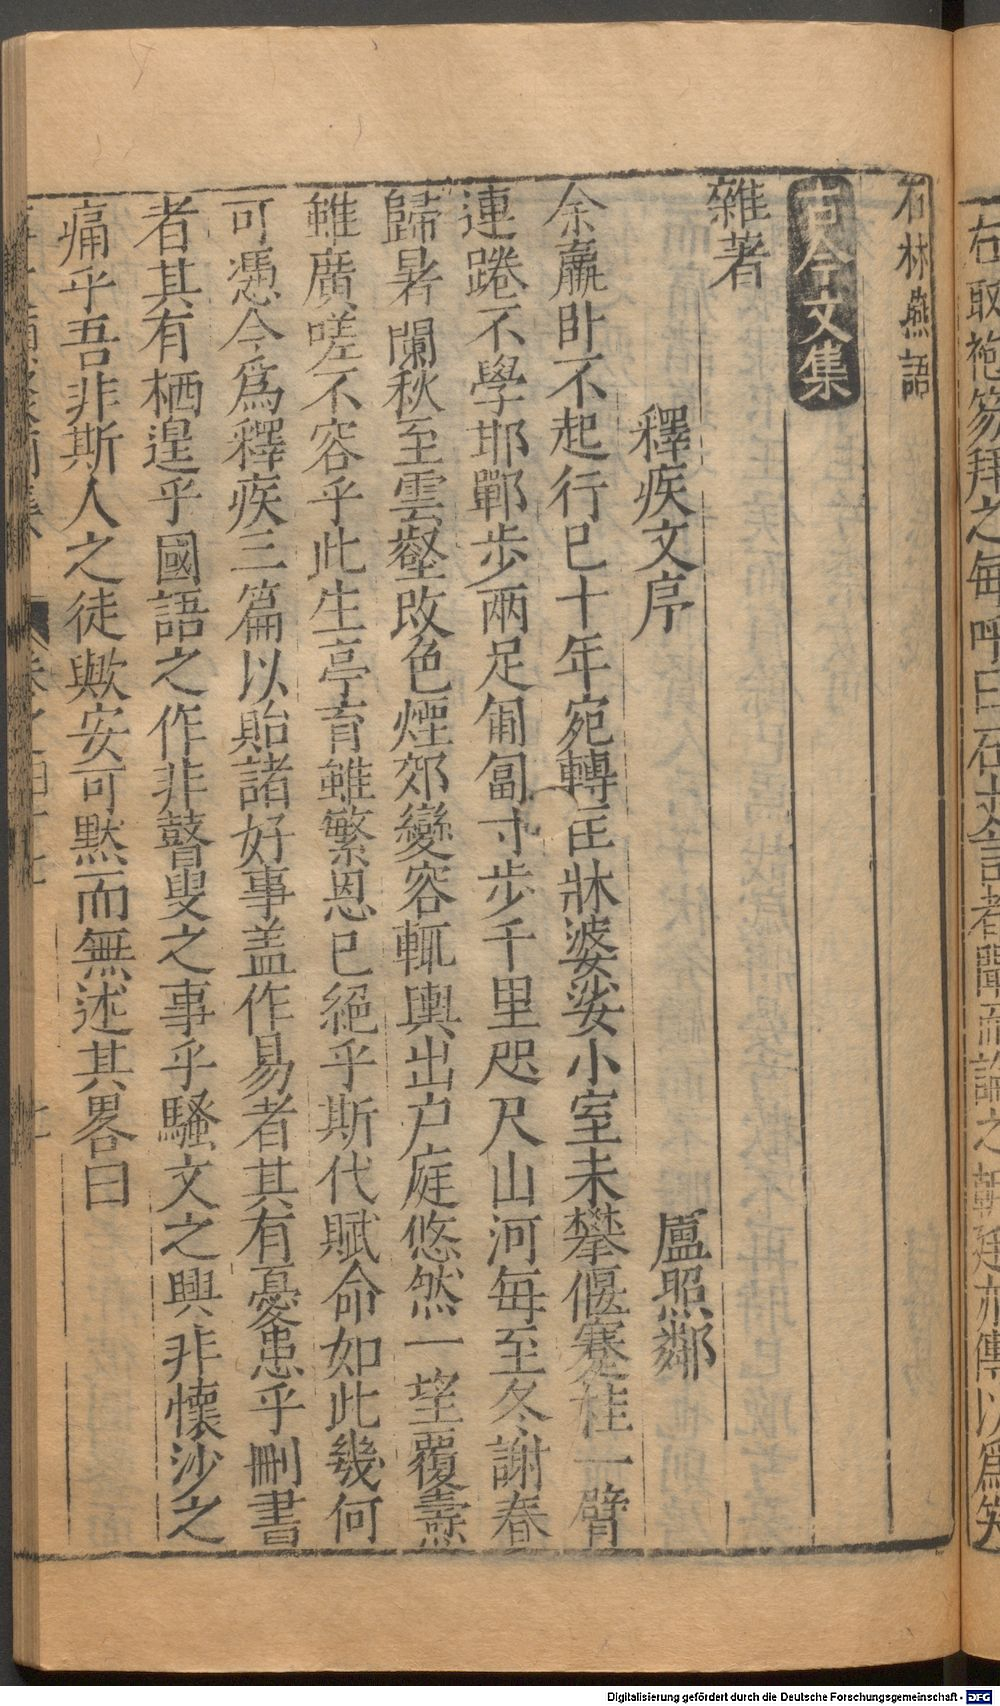 右取袍笏拜之每呼曰石丈言者聞而論之朝廷亦傳以爲笑
石林燕語
古今文集
雜著
釋疾文序 盧照鄰
余羸臥不起行已十年宛轉匡牀婆娑小室未攀偃蹇桂一臂
連踡不學邯鄲步兩足匍匐寸步千里咫尺山河每至冬謝春
歸暑闌秋至雲壑改色煙郊變容輒輿出户庭悠然一望覆燾
雖廣嗟不容乎此生亭育雖繁恩已絕乎斯代賦命如此幾何
可憑今爲釋疾三篇以貽諸好事盖作易者其有憂患乎刪書
者其有栖遑乎國語之作非瞽叟之事乎騷文之興非懷沙之
痛乎吾非斯人之徒歟安可默而無述其畧曰